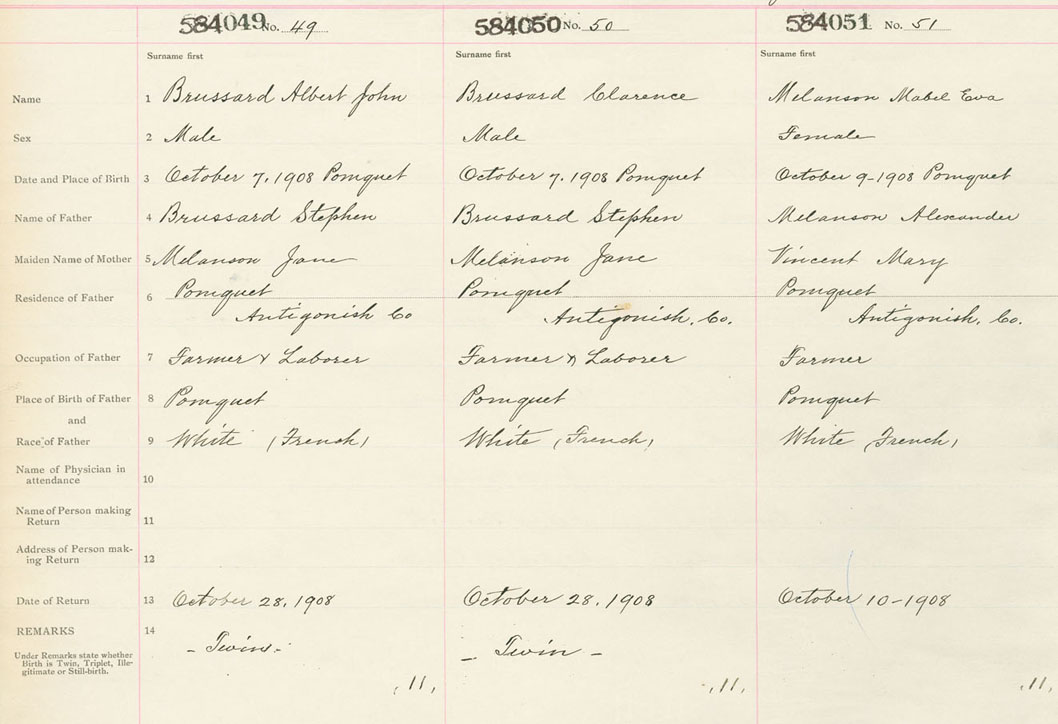 584049 No. 49 584050 No. 50 584051 No. 51
Surname first Surname first Surname first
Name 1 Brussard Albert John Brussard Clarence Melanson Mabel Eva
Sex 2 Male Male Female
Date and Place of Birth 3 October 7, 1908 Pomquet October 7, 1908 Pomquet October 9-1908 Pomquet
Name of Father 4 Brussard Stephen Brussard Stephen Melanson Alexander
Maiden Name of Mother 5 Melanson Jane Melanson Jane Vincent Mary
Residence of Father 6 Pomquet Pomquet Pomquet
Antigonish Co Antigonish. Co. Antigonish. Co.
Occupation of Father 7 Farmer & Laborer Farmer & Laborer Farmer
Place of Birth of Father 8 Pomquet Pomquet Pomquet
and
Race of Father 9 White (French) White (French) White (French)
Name of Physician in
attendance 10
Name of Person making
Return 11
Address of Person mak-
ing Return 12
Date of Return 13 October 28, 1908 October 28, 1908 October 10-1908
REMARKS 14
Under Remarks state whether
Birth is Twin, Triplet, Ille-
gitimate or Still-birth.
- Twin - - Twin -
,11, ,11, ,11,